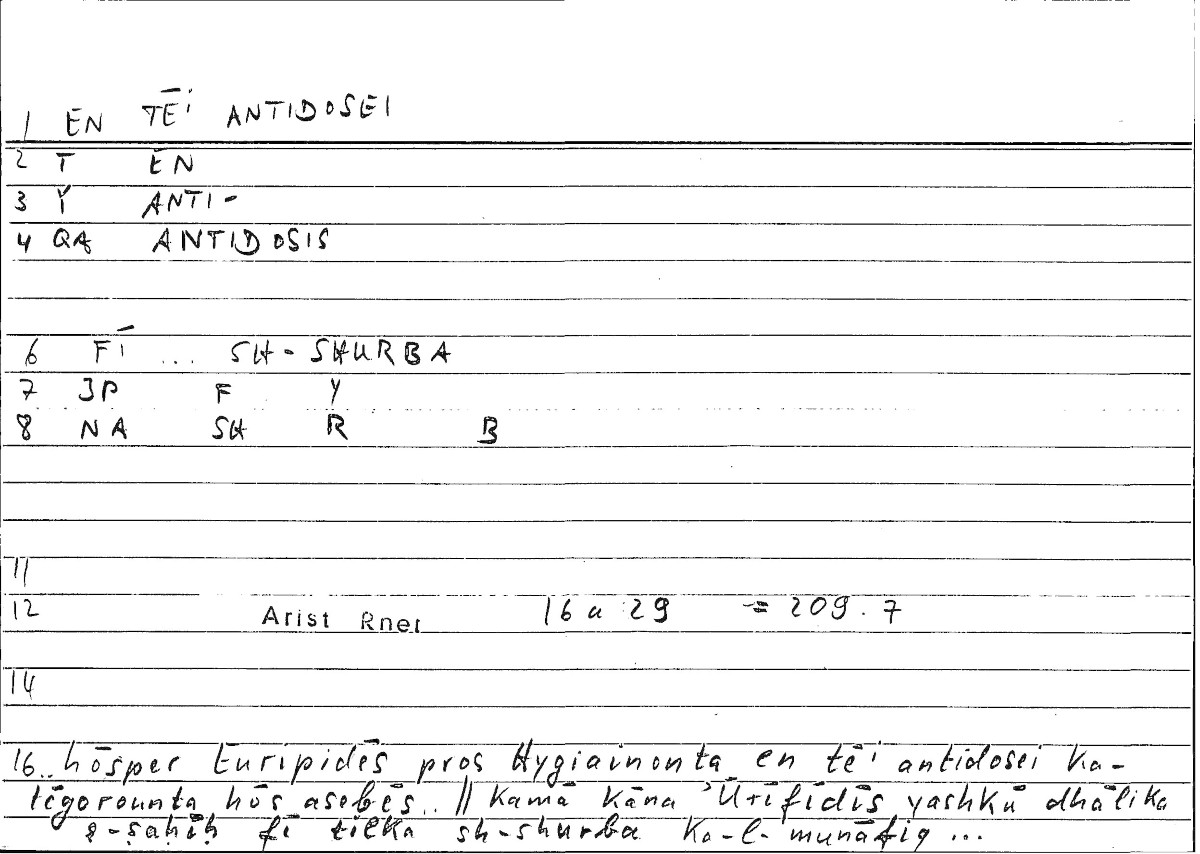 1 EN TĒi ANTIDOSEI
2 T EN
3 Y ANTI-
4 QA ANTIDOSIS
6 FĪ ... SH-SHURBA
7 JP F Y
8 NA SH R B
11
12 Arist Rner 16 a 29 = 209.7
14
16.. hōsper Euripidēs pros Hygiainonta en tēi antidosei ka-
tēgorounta hōs asebēs.. || kamā kāna 'Ūrīfīdīs yashkū dhālika
ṣ-ṣaḥīḥ fī tilka sh-shurba ka-l-munāfiq ...